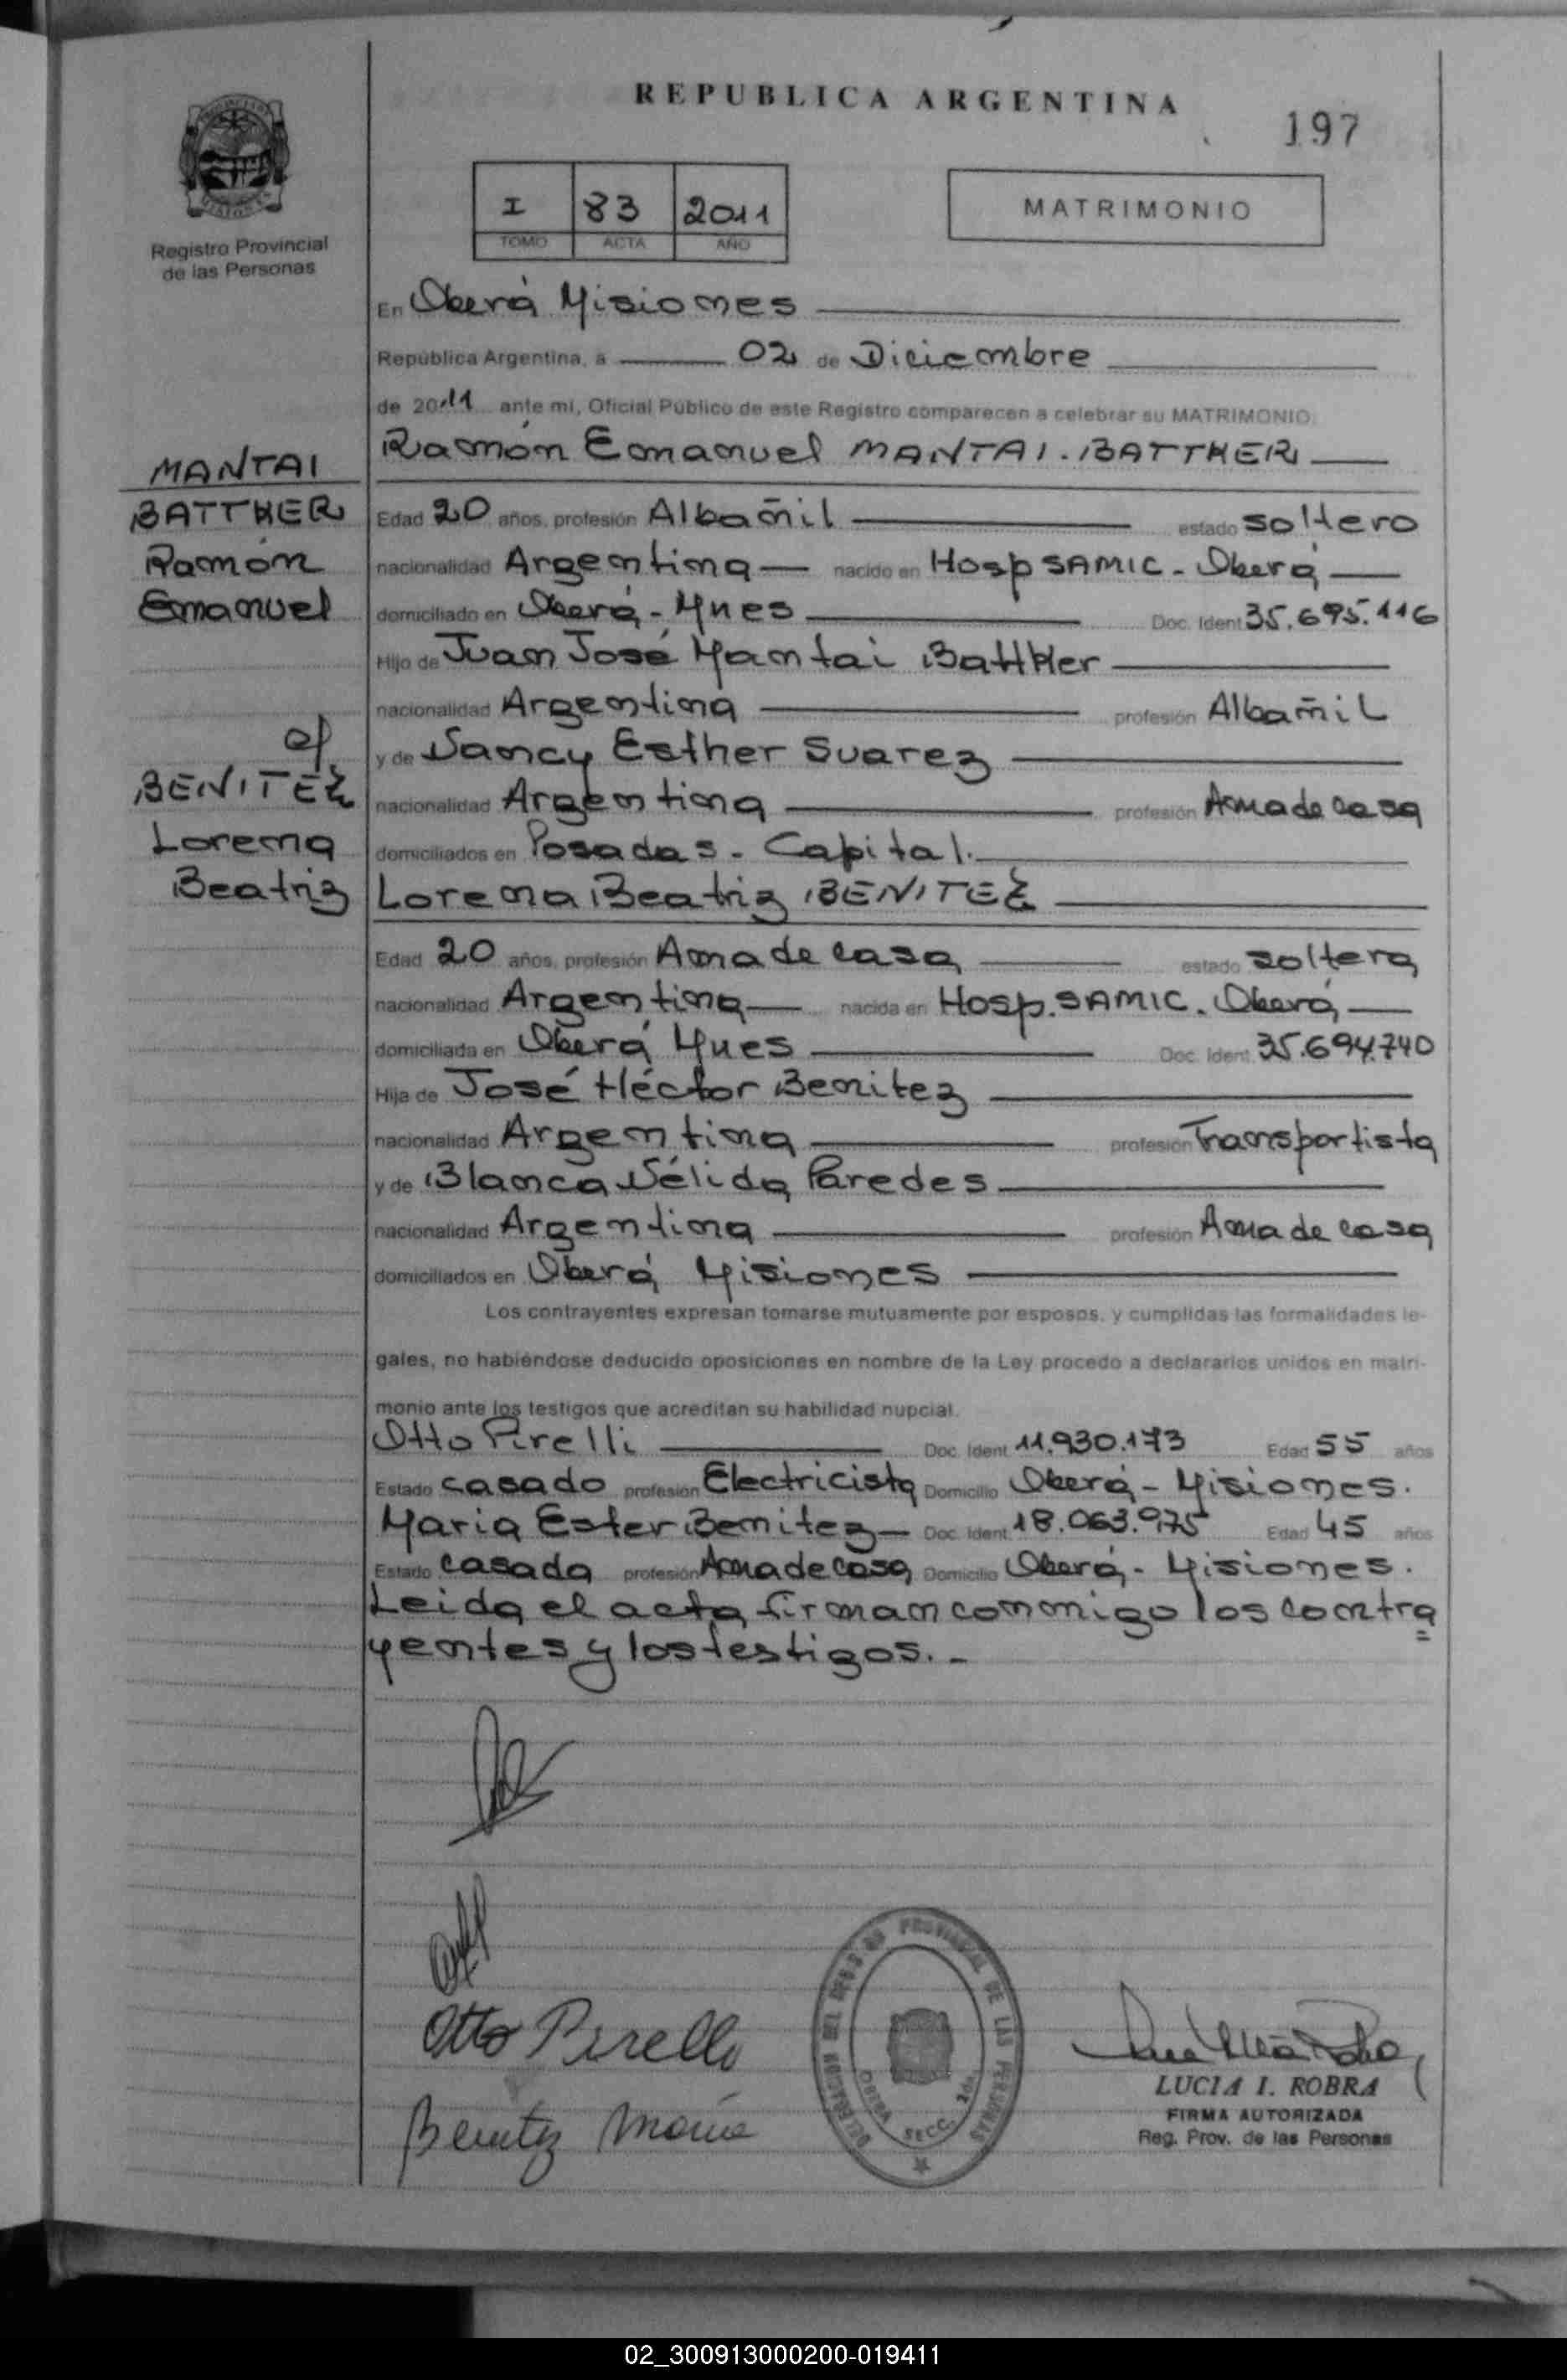 REPUBLICA ARGENTINA
197
I 83 2011
TOMO ACTA AÑO
MATRIMONIO
Registro Provincial
de las Personas
En Oberá Misiones
República Argentina, a 02 de Diciembre
de 2011 ante mi, Oficial Público de este Registro comparecen a celebrar su MATRIMONIO:
Ramón Emanuel MANTAI. BATTHER
MANTAI
BATTHER
Ramón
Emanuel
Edad 20 años, profesión Albañil estado soltero
nacionalidad Argentina nacido en Hosp SAMIC - Oberá
domiciliado en Oberá - Mnes Doc. Ident 35.695.116
Hijo de Juan José Mantai Batther
nacionalidad Argentina profesión Albañil
y de Nancy Esther Suarez
nacionalidad Argentina profesión Ama de casa
domiciliados en Posadas - Capital.
c/
BENITEZ
Lorena
Beatriz
Lorena Beatriz BENITEZ
Edad 20 años, profesión Ama de casa estado soltera
nacionalidad Argentina nacida en Hosp. SAMIC. Oberá
domiciliada en Oberá Mnes Doc. Ident. 35.694.740
Hija de José Héctor Benitez
nacionalidad Argentina profesión Transportista
y de Blanca Nélida Paredes
nacionalidad Argentina profesión Ama de casa
domiciliados en Oberá Misiones
Los contrayentes expresan tomarse mutuamente por esposos, y cumplidas las formalidades le-
gales, no habiéndose deducido oposiciones en nombre de la Ley procedo a declararlos unidos en matri-
monio ante los testigos que acreditan su habilidad nupcial.
Otto Pirelli Doc. Ident. 11.930.173 Edad 55 años
Estado casado profesión Electricista Domicilio Oberá - Misiones.
Maria Ester Benitez Doc. Ident. 18.063.975 Edad 45 años
Estado casada profesión Ama de casa Domicilio Oberá - Misiones.
Leida el acta firman conmigo los contra
yentes y los testigos. -
Otto Pirelli
Benitez Maria
DELEGACION DEL REGISTRO PROVINCIAL DE LAS PERSONAS
OBERA SECC.
LUCIA I. ROBRA
FIRMA AUTORIZADA
Reg. Prov. de las Personas
02_300913000200-019411